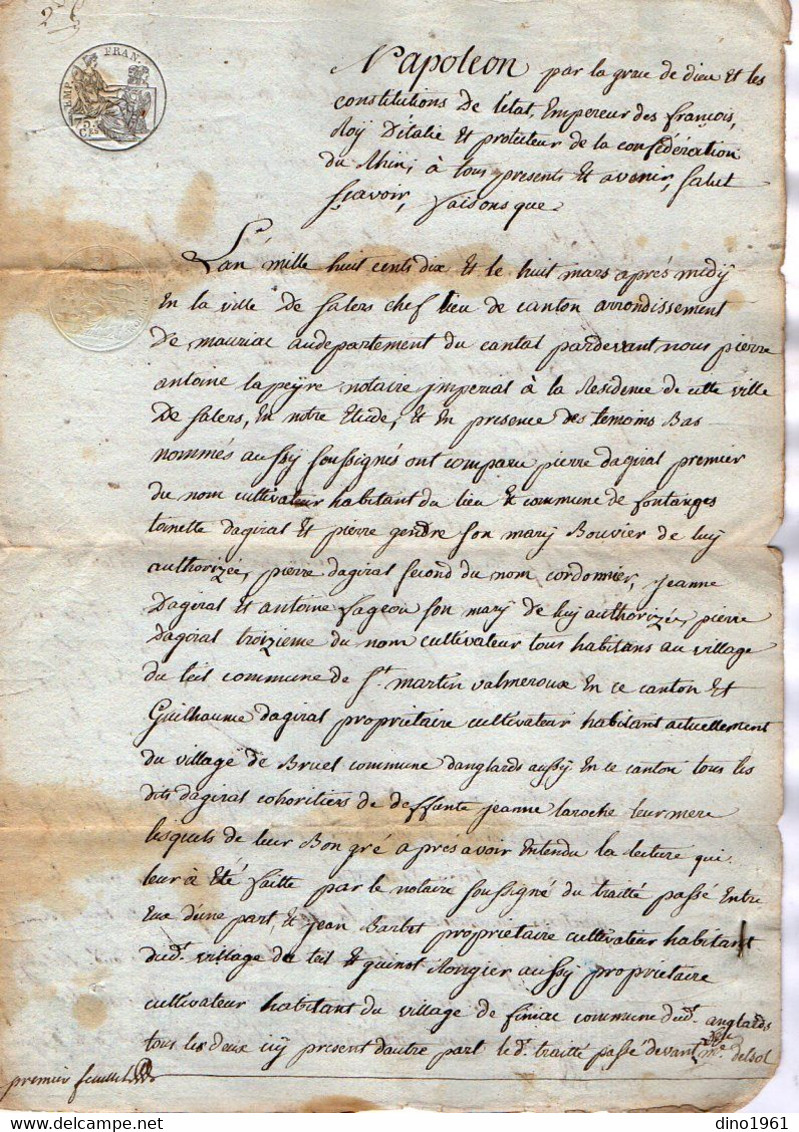 EMP. FRAN.
75
Napoleon par la grace de dieu Et les
constitutions de l'état, Empereur des françois,
Roÿ d'italie Et protecteur de la confédération
du Rhin, à tous presents Et avenir, salut
sçavoir, faisons que
L'an mille huit cents dix Et le huit mars aprés midÿ
En la ville de Salers chef lieu de canton arrondissement
de mauriac audepartement du cantal pardevant nous pierre
antoine lapeÿre notaire jmperial à la Residence de cette ville
de salers, En notre Etude, Et En presence des temoins Bas
nommés aussÿ soussignés ont comparu pierre dagiral premier
du nom cultivateur habitant du lieu Et commune de fontanges
toinette dagiral Et pierre gendre son marÿ Bouvier de luÿ
authorizée, pierre dagiral second du nom cordonnier, jeanne
Dagiral Et antoine sageou son marÿ de luÿ authorizée, pierre
Dagiral troizieme du nom cultivateur tous habitans au village
du teil commune de St. martin valmeroux En ce canton Et
Guilhaume dagiral propriétaire cultivateur habitant actuellement
du village de Bruel commune danglards aussÿ En ce canton tous les
dits dagiral cohoritiers de deffante jeanne laroche leur mere
lesquels de leur Bon gré aprés avoir Entendu la lecture qui
leur à Eté faitte par le notaire soussigné du traitté passé Entre
Eux d'une part, Et jean Barbet propriétaire cultivateur habitant
dudt. village du teil Et guinot Rongier aussÿ propriétaire
cultivateur habitant du village de finiac commune dudt. anglards
tous les deux icÿ present dautre part le dt. traitté passé devant me. delsol
premier feuillet
dino1961